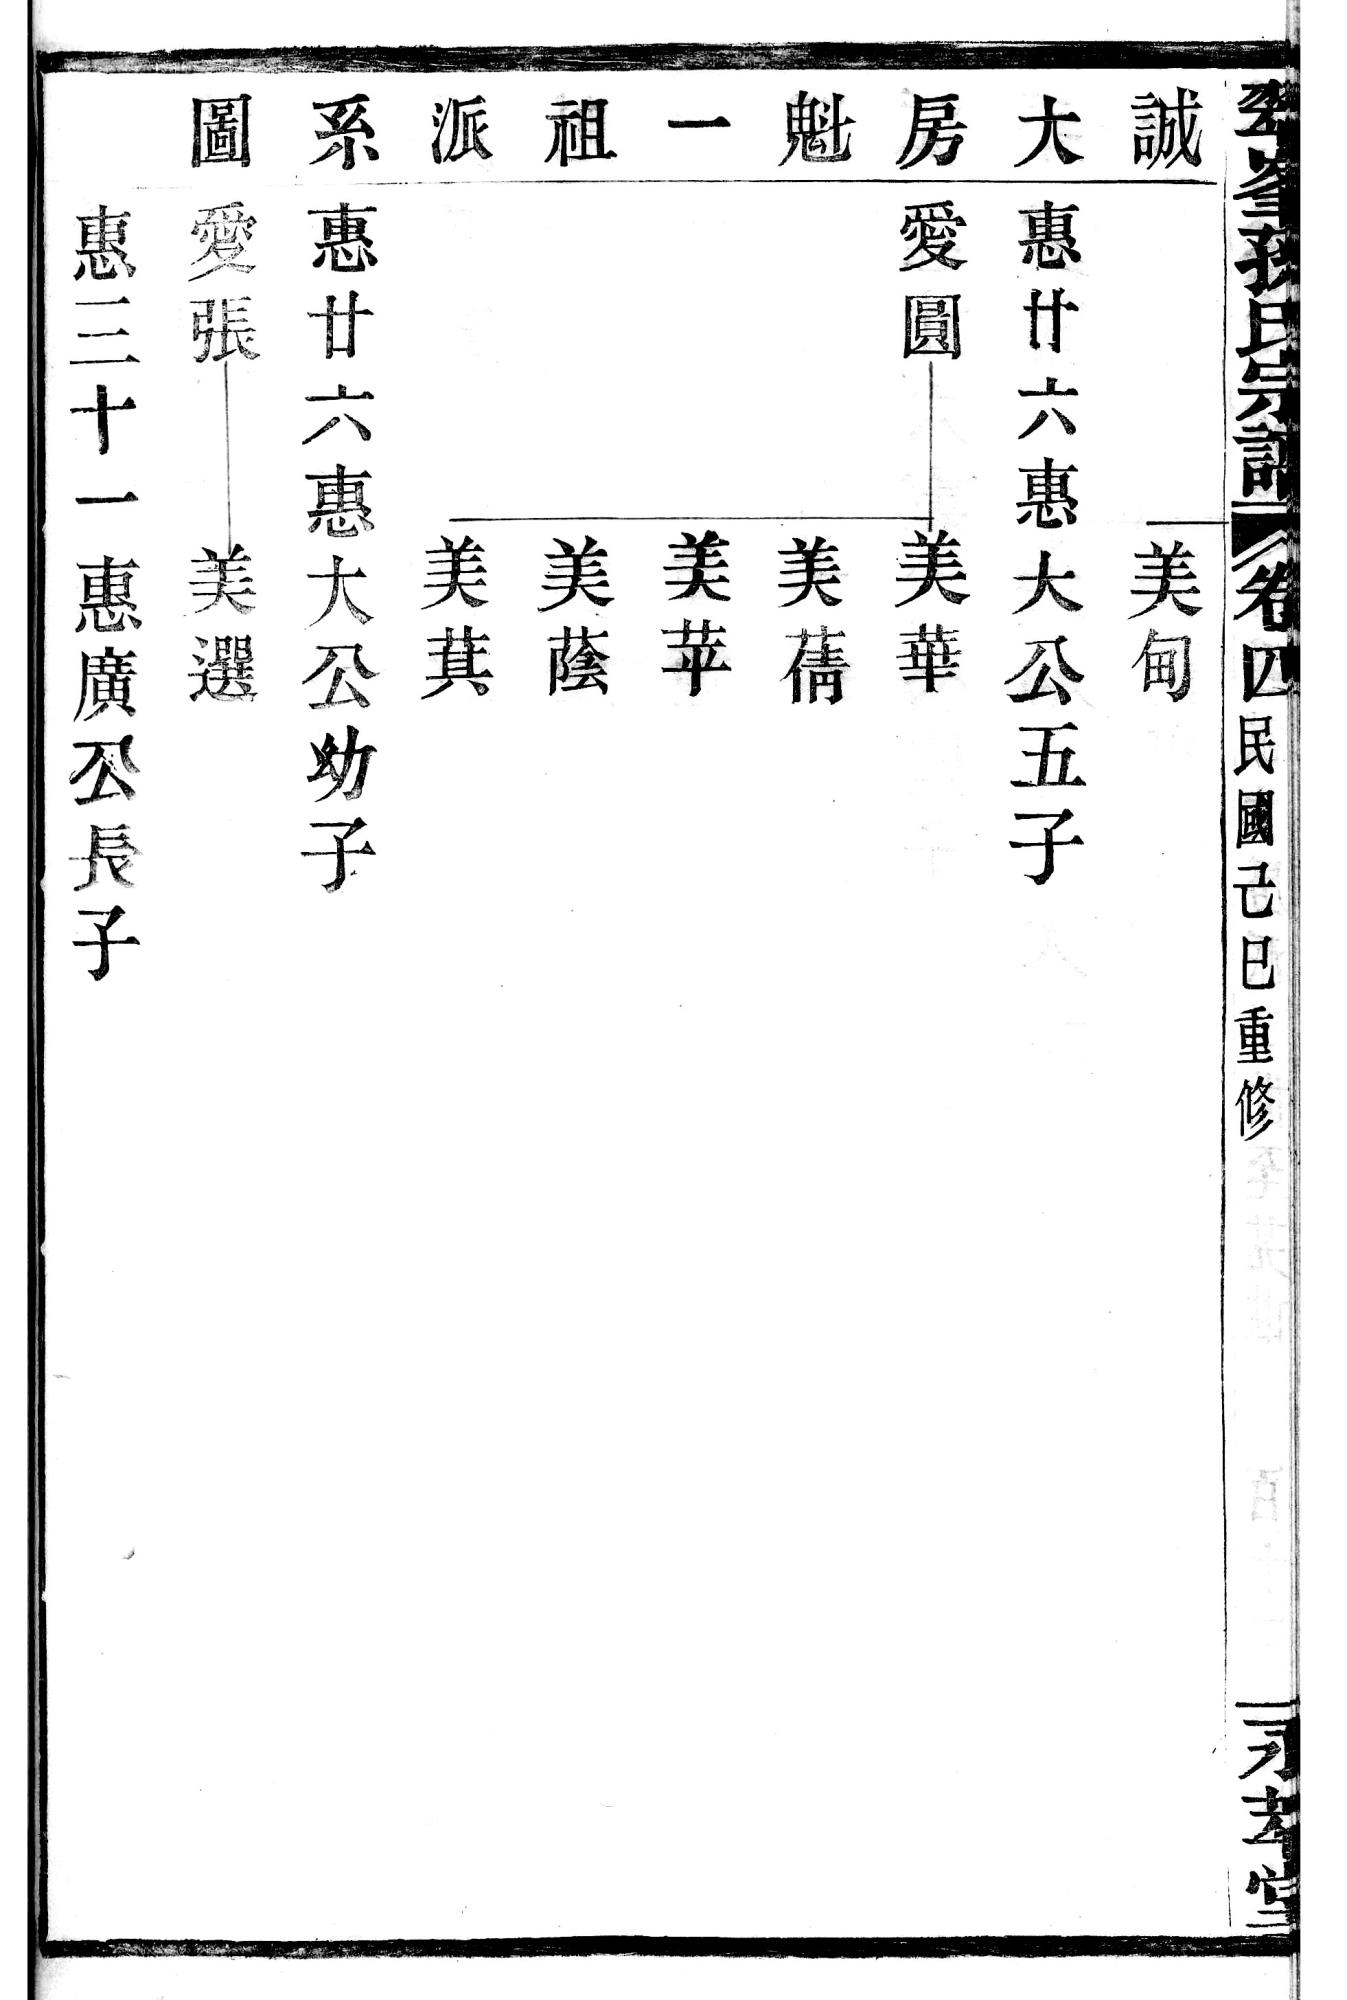 峯孫氏宗譜
卷四
民國己巳重修
永孝堂
誠大房魁一祖派系圖
美甸
惠廿六惠大公五子
愛圓
美華
美蒨
美苹
美蔭
美萁
惠廿六惠大公幼子
愛張
美選
惠三十一惠廣公長子